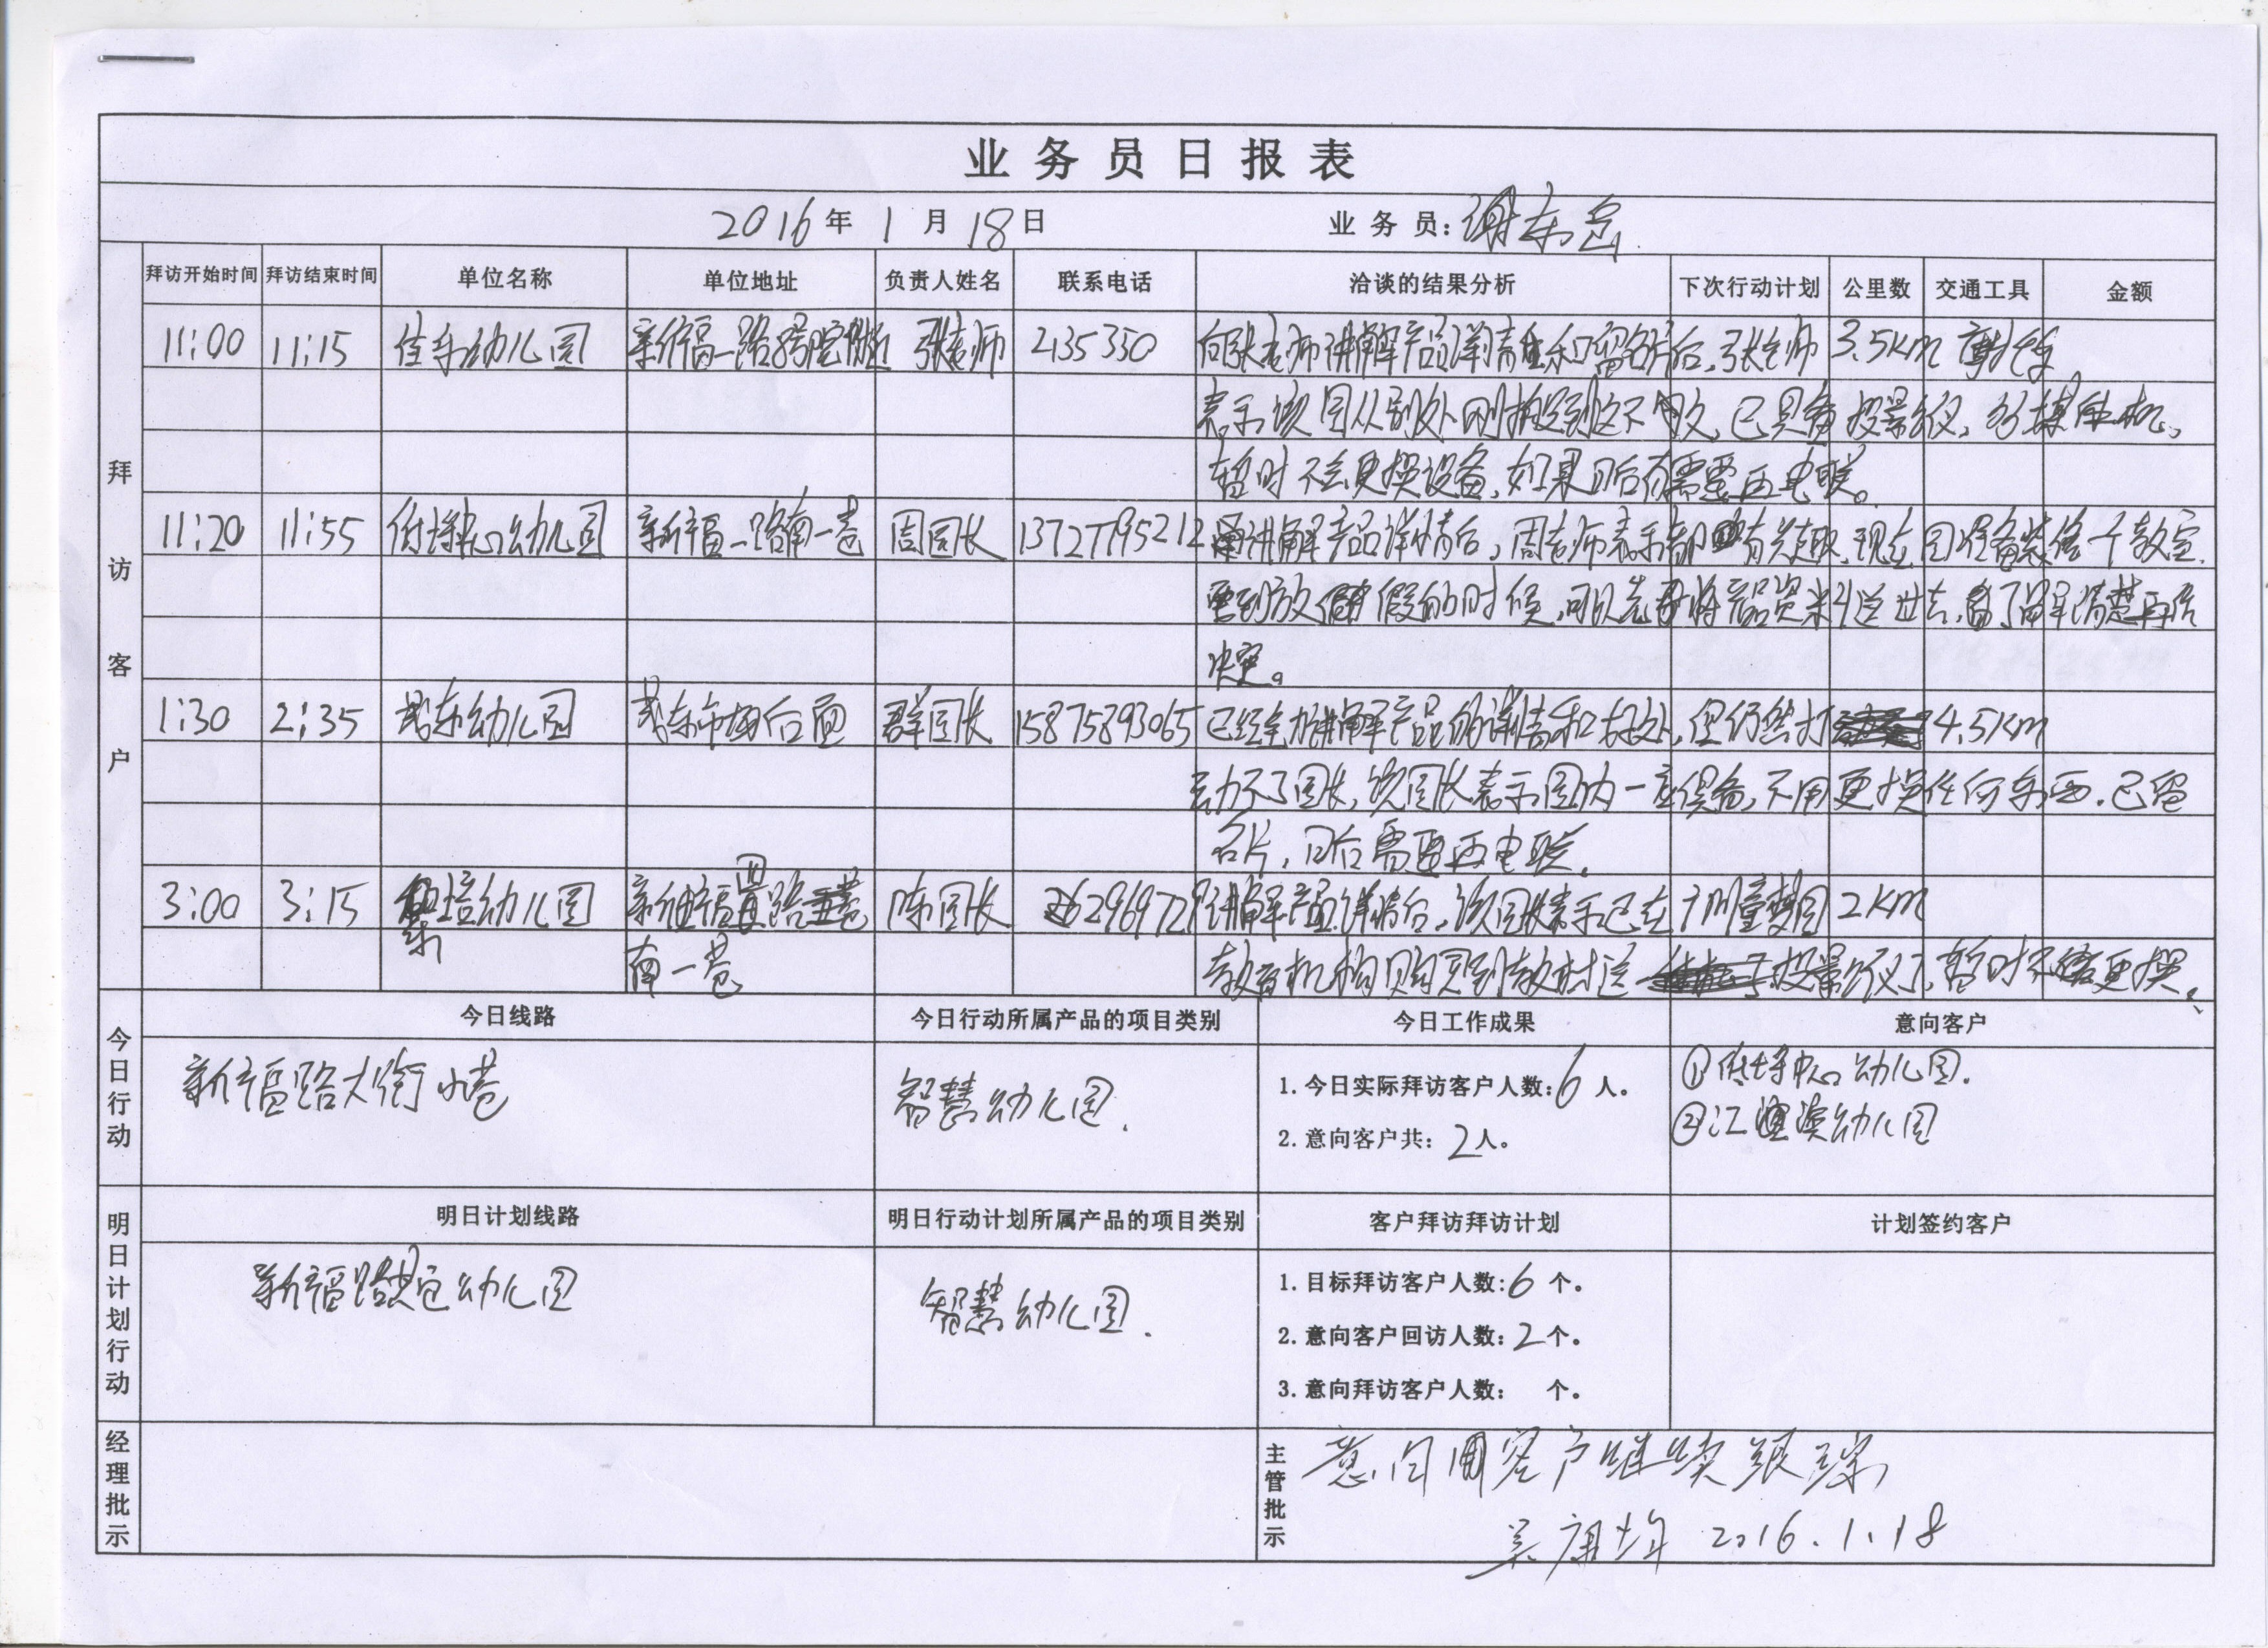 业务员日报表
2016年1月18日 业务员：谢东
拜访客户
拜访开始时间 拜访结束时间 单位名称 单位地址 负责人姓名 联系电话 洽谈的结果分析 下次行动计划 公里数 交通工具 金额
11:00 11:15 佳禾幼儿园 新福一路 张老师 2135350 向张老师讲解产品详情和留名片后，张老师 3.5Km 摩托车
表示该园从别处刚搬到这不久，已具备投影仪，多媒体机，
暂时不会更换设备，如果日后有需要再电联。
11:20 11:55 中心幼儿园 新福一路南一巷 周园长 13727795212 讲解产品详情后，周老师表示都有兴趣，现在园准备装修一个教室，
要到放假的时候，可以先将产品资料送过去，看了解清楚再
决定。
1:30 2:35 茂东幼儿园 茂东市场后面 群园长 15875893065 已经全力讲解产品的详情和好处，但仍然打 4.5Km
动不了园长，该园长表示园内一应俱备，不用更换任何东西，已留
名片，日后需要再电联。
3:00 3:15 培幼儿园 新福四路 陈园长 2629697 讲解产品详情后，该园长表示已在广州童梦园 2Km
南一巷 教育机构购买到教材送 投影仪了，暂时不更换。
今日行动
今日线路 今日行动所属产品的项目类别 今日工作成果 意向客户
新福路大街小巷 智慧幼儿园. 1.今日实际拜访客户人数：6人。 ① 中心幼儿园.
2.意向客户共：2人。 ②江 幼儿园
明日计划行动
明日计划线路 明日行动计划所属产品的项目类别 客户拜访拜访计划 计划签约客户
新福路其它幼儿园 智慧幼儿园. 1.目标拜访客户人数：6个。
2.意向客户回访人数：2个。
3.意向拜访客户人数： 个。
经理批示
主管批示 意向客户继续跟踪
吴 2016.1.18